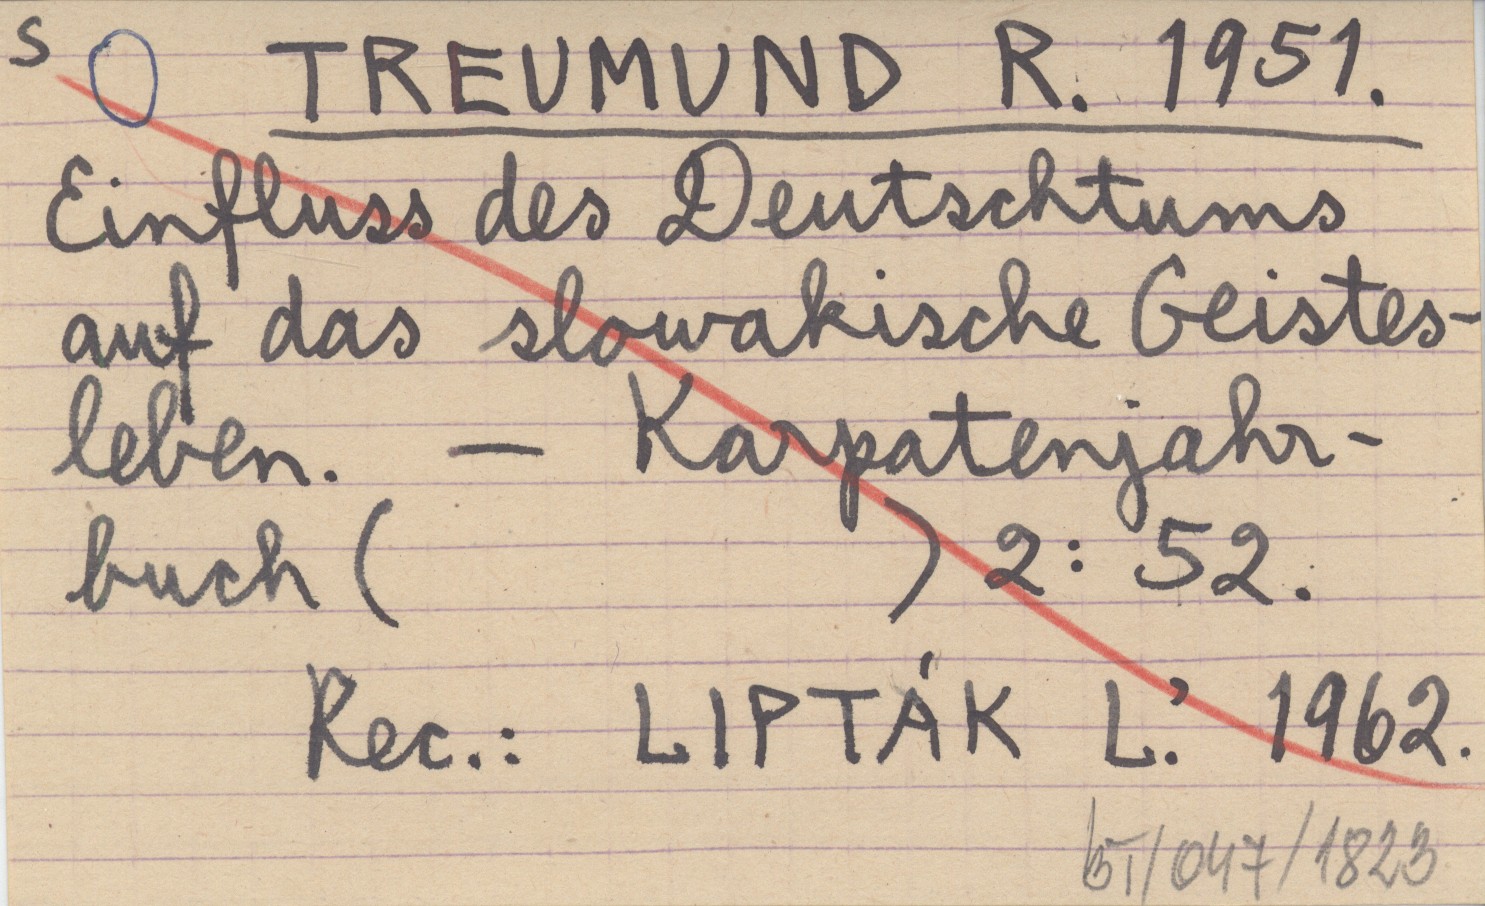 S O TREUMUND R. 1951.
Einfluss des Deutschtums
auf das slowakische Geistes-
leben. — Karpatenjahr-
buch ( ) 2: 52.
Rec.: LIPTÁK Ľ. 1962.
/047/1823